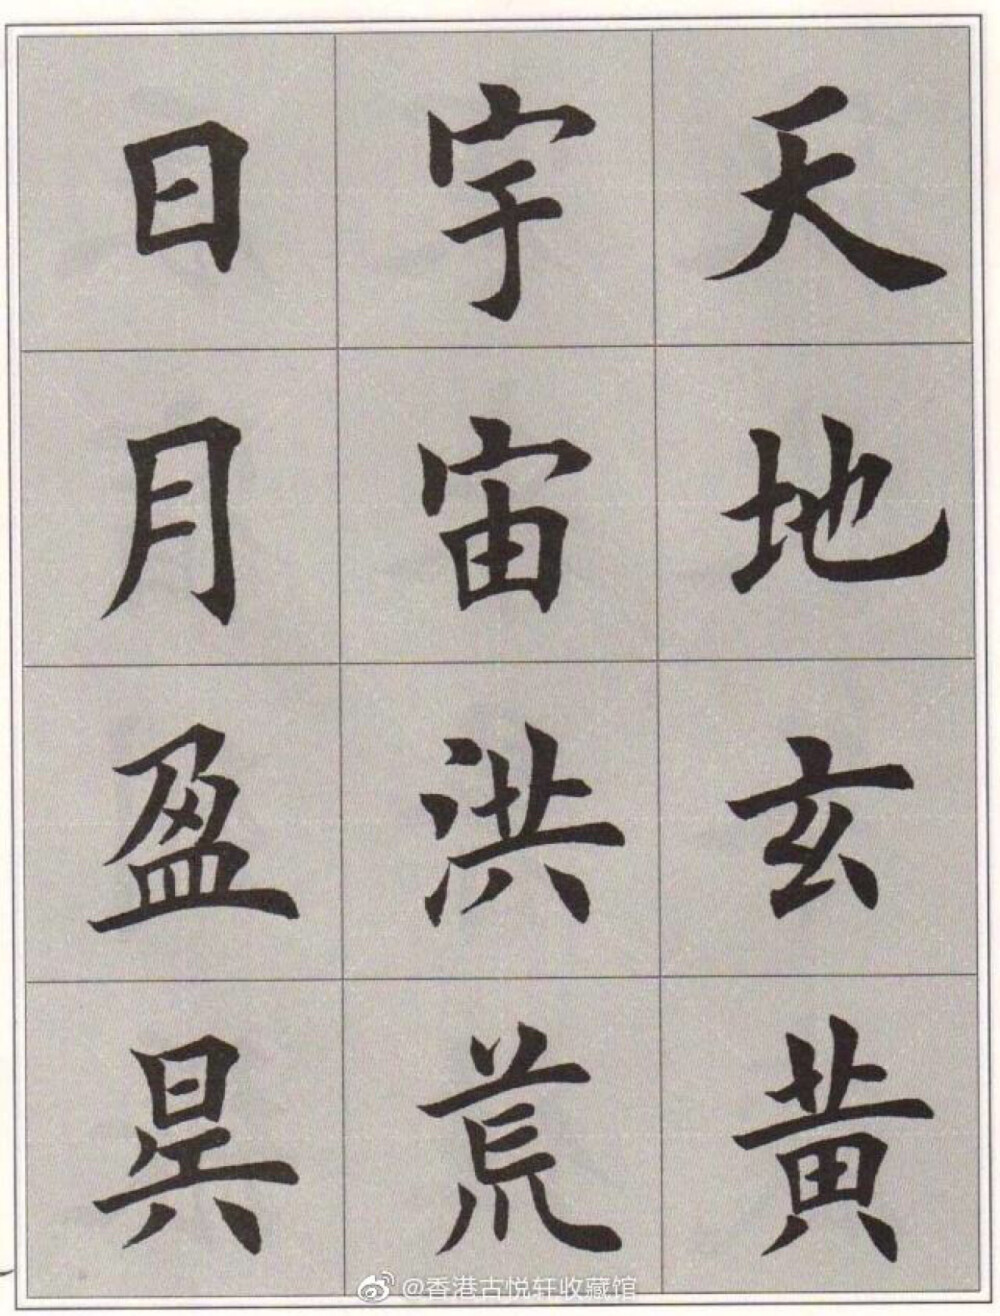 天地玄黄
宇宙洪荒
日月盈昃
@香港古悦轩收藏馆